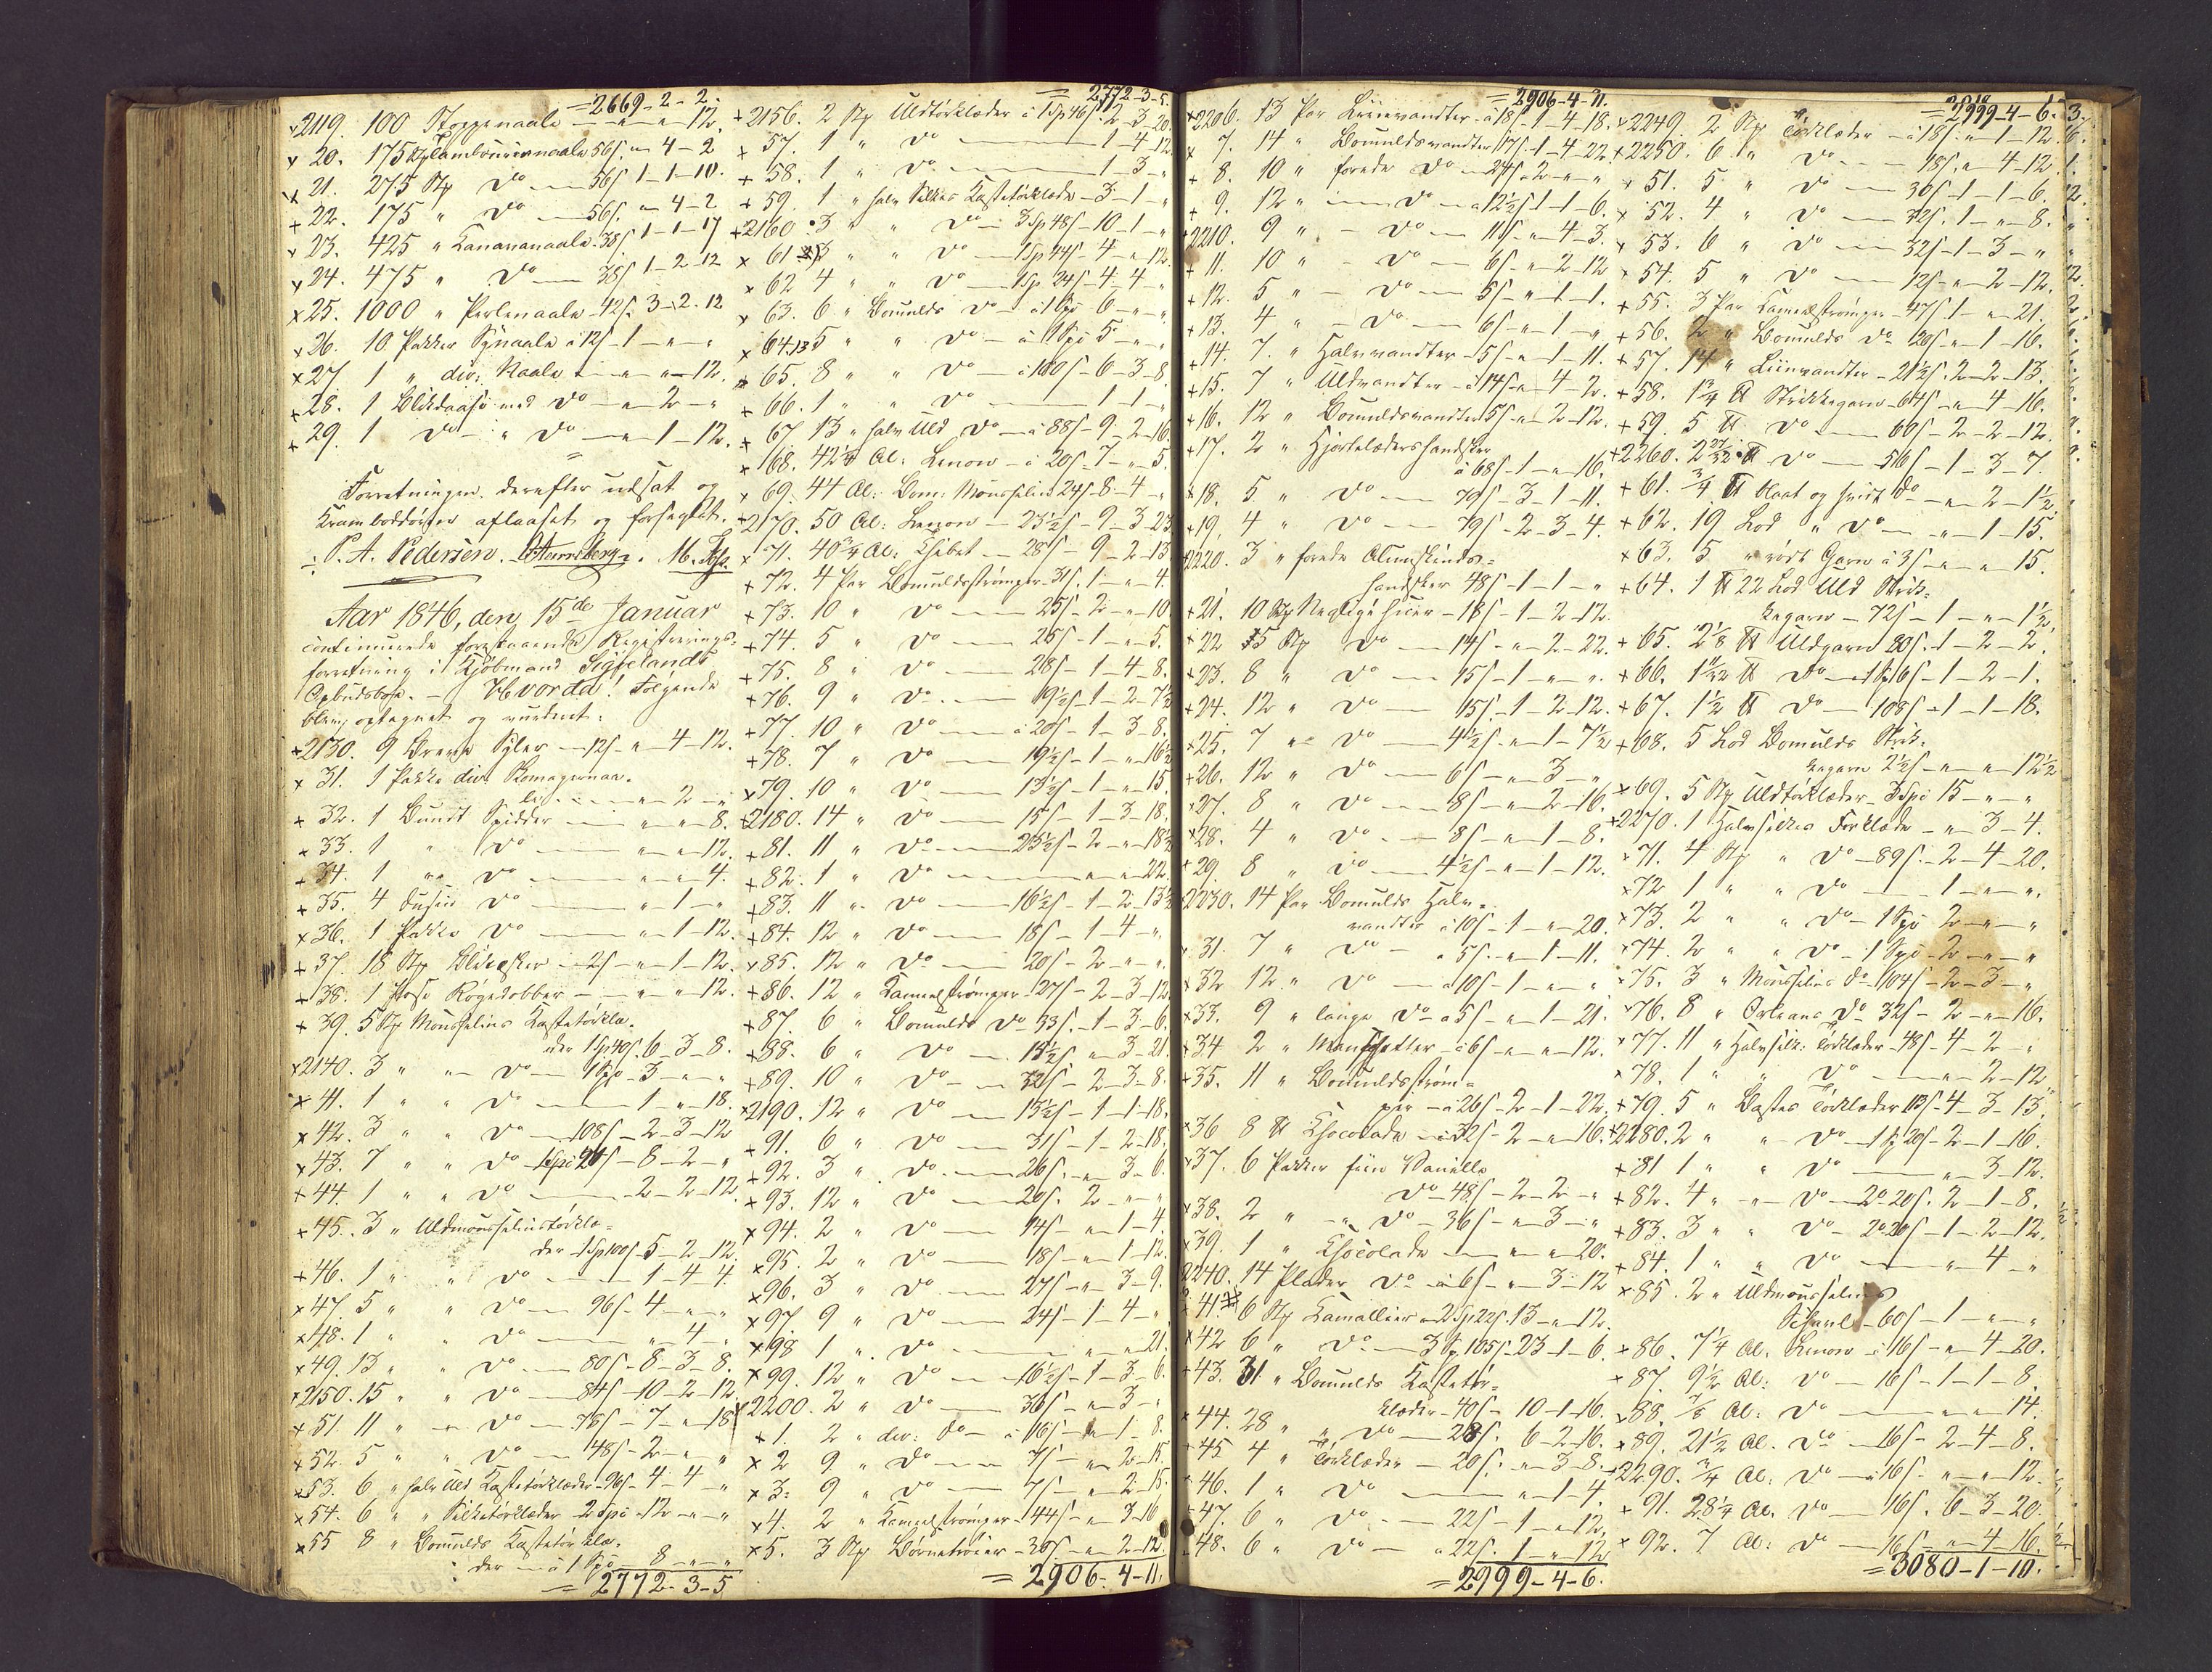 = 2669-2-2.
+2119. 100 Stoppenaale - - " - " 12.
+ 20. 175 Stk Tambourernaale 56ſ. " 4-2
+ 21. 275 Stk Do - 56ſ 1-1-10.
+ 22. 175 " Do - 56ſ. " 4-2
+ 23. 425 " Kanavanaale 38ſ 1-1-17
+ 24. 475 " Do - 38ſ 1-2-12
+ 25. 1000 " Perlenaale - 42ſ. 3-2.12
+ 26. 10 Pakker Synaale à 12ſ - 1 - " - "
+ 27. 1 " div: Naale - " - " - 12.
+ 28. 1 Blikdaase med Do - " 2 - "
+ 29. 1 Do - " Do - " 1-12.
Forretningen derefter udsat og
Kramboddøren aflaaset og forseglet.
P. A. Pedersen.
Aar 1846, den 15de Januar
continuerede forestaaende Registrerings-
forretning i Kjøbmand Sigvelands
Opbudsbo. - Hvorda! Følgende
blev optegnet og vurderet:
+2130. 9 Syler - 12ſ - " 4-12.
+ 31. 1 Pakke div: Komagernaa-
le - - " 2 - "
+ 32. 1 Bundt Spidder - " - " 8.
+ 33. 1 " Do - " - " 12.
+ 34. 1 " Do - " - " 4.
+ 35. 4 dusin Do - " 1 - "
+ 36. 1 Pakke Do - " 1-12.
+ 37. 18 Stk Blikæsker - 2ſ - " 1-12.
+ 38. 1 Æske Røgedobber - " - " 12.
+ 39. 5 Stk Mousselins Kastetørklæ-
der 1 Sp 40ſ. 6-3-8.
+2140. 3 " " Do - 1 Spd 3 - " - "
+ 41. 1 " " Do - 1 - " 18.
+ 42. 3 " " Do - 108ſ - 2-3-12
+ 43. 7 " " Do - 1 Spd 24ſ - 8-2 - "
+ 44. 1 " " Do - 2-2-12.
+ 45. 3 " Uldmousselinstørklæ-
der - 1 Sp 100ſ - 5-2-12
+ 46. 1 " " Do - 1-4-4.
+ 47. 5 " " Do - 96ſ - 4 - " - "
+ 48. 1 " " Do - " 4 - "
+ 49. 13 " " Do - 80ſ - 8-3-8.
+2150. 15 " " Do - 84ſ - 10-2-12.
+ 51. 11 " " Do - 78ſ - 7 - " 18
+ 52. 5 " " Do - 48ſ - 2 - " - "
+ 53. 6 " halv Uld Kastetørklæder - 96ſ - 4-4 - "
+ 54. 6 " " Silketørklæder 2 Spd - 12 - " - "
+ 55. 8 " Bomulds Kastetørklæ-
der - à 1 Spd - 8 - " - "
= 2772-3-5
= 2772-3-5.
+2156. 2 Stk Uldtørklæder à 1 Sp 46ſ. 2-3-20.
+ 57. 1 " Do - 1-4-12.
+ 58. 1 " Do - 1-3 - "
+ 59. 1 " halv Silkes Kastetørklæde - 3-1 - "
+2160. 3 " " Do - 3 Sp 48ſ - 10-1 - "
+ 61. 3 " " Do - 1 Sp 44ſ - 4 - " 12.
+ 62. 4 " " Do - 1 Sp 24ſ - 4-4 - "
+ 63. 6 " Bomulds Do - à 1 Spd 6 - " - "
+ 64. 5 " " Do - à 1 Spd 5 - " - "
+ 65. 8 " " Do - à 100ſ - 6-3-8.
+ 66. 1 " " Do - 1-1 - "
+ 67. 13 " halv Uld Do - à 88ſ - 9-2-16.
+ 68. 42¼ Al: Lenow - à 20ſ - 7 - " 5.
+ 69. 44 Al: Bom: Mousselin 24ſ - 8-4 - "
+2170. 50 Al: Lenow - 23½ſ - 9-3-23
+ 71. 40¾ Al: Thibet - 28ſ - 9-2-13
+ 72. 4 Par Bomuldsstrømper - 31ſ. 1 - " 4.
+ 73. 10 " Do - 25ſ - 2 - " 10
+ 74. 5 " Do - 25ſ - 1 - " 5.
+ 75. 8 " Do - 28ſ - 1-4-8.
+ 76. 9 " Do - 19½ſ - 1-2-7½
+ 77. 10 " Do - à 20ſ - 1-3-8.
+ 78. 7 " Do - 19½ſ - 1 - " 16½
+ 79. 10 " Do - 13½ſ - 1 - " 15.
+2180. 14 " Do - 15ſ - 1-3-18.
+ 81. 11 " Do - 23½ſ - 2 - " 18½
+ 82. 1 " Do - " - " 22.
+ 83. 11 " Do - 16½ſ - 1-2-13½
+ 84. 12 " Do - 18ſ - 1-4 - "
+ 85. 12 " Do - 20ſ - 2 - " - "
+ 86. 12 " Kameelstrømper - 27ſ - 2-3-12
+ 87. 6 " Bomulds Do 33ſ. - 1-3-6.
+ 88. 6 " Do - 15½ſ " 3-21.
+ 89. 10 " Do - 32ſ - 2-3-8.
+2190. 12 " Do - 13½ſ - 1-1-18.
+ 91. 6 " Do - 31ſ - 1-2-18.
+ 92. 3 " Do - 26ſ. " 3-6.
+ 93. 12 " Do - 20ſ. 2 - " - "
+ 94. 2 " Do - 14ſ - " 1-4.
+ 95. 2 " Do - 18ſ - " 1-12.
+ 96. 3 " Do - 27ſ - " 3-9.
+ 97. 9 " Do - 24ſ - 1-4 - "
+ 98. 1 " Do - " - " 21.
+ 99. 12 " Do - 16½ſ - 1-3-6.
2200. 2 " Do - 36ſ - " 3 - "
+ 1. 2 " div: Do - à 16ſ - " 1-8.
+ 2. 9 " Do - 7ſ - " 2-15.
+ 3. 9 " Do - 7ſ - " 2-15.
+ 4. 2 " Kameelstrømper - 44ſ - " 3-16
+ 5. 3 Stk Børnetrøier - 36ſ - " 2-12.
= 2906-4-11.
= 2906-4-11.
+2206. 13 Par Liinvandter - à 18ſ - 1-4-18.
+ 7. 14 " Bomuldsvandter 17ſ - 1-4-22.
+ 8. 10 " forede Do - 24ſ - 2 - " - "
+ 9. 12 " - Do - à 12½ſ - 1-1-6.
+2210. 9 " - Do - 11ſ - " 4-3.
+ 11. 10 " - Do - 6ſ - " 2-12
+ 12. 5 " - Do - 5ſ - " 1-1.
+ 13. 4 " - Do - 6ſ - " 1 - "
+ 14. 7 " Halvvandter - 5ſ - " 1-11.
+ 15. 7 " Uldvandter - à 14ſ - " 4-2.
+ 16. 12 " Bomuldsvandter 5ſ - " 2-12.
+ 17. 2 " Hjortelæders handsker
à 68ſ - 1 - " 16.
+ 18. 5 " Do - 79ſ - 3-1-11.
+ 19. 4 " Do - 79ſ - 2-3-4.
2220. 3 " forede Alunskinds-
handsker 48ſ - 1-1 - "
+ 21. 10 Stk Negligé huer - 18ſ - 1-2-12.
+ 22. 5 Stk Do - 14ſ - " 2-22.
+ 23. 8 " Do - 15ſ - 1 - " - "
+ 24. 12 " Do - 15ſ. - 1-2-12.
+ 25. 7 " Do - 4½ſ - " 1-7½
+ 26. 12 " Do - 6ſ - " 3 - "
+ 27. 8 " Do - 8ſ - " 2-16.
+ 28. 4 " Do - 8ſ - " 1-8.
+ 29. 8 " Do - 4½ſ - " 1-12.
2230. 14 Par Bomulds Halv-
vandter à 10ſ - 1 - " 20.
31. 7 " Do - à 5ſ - " 1-11.
32. 12 " Do - à 10ſ - 1 - " - "
+ 33. 9 " lange Do - à 5ſ - " 1-21.
+ 34. 2 " Manschetter - à 6ſ - " - " 12.
+ 35. 11 " Bomuldsstrøm-
per - à 26ſ - 2-1-22.
+ 36. 8 ℔ Chocolade - à 32ſ - 2 - " 16.
+ 37. 6 Pakker fiin Vanille
Do - 48ſ - 2-2 - "
+ 38. 2 " - " Do - 36ſ - " 3 - "
+ 39. 1 " Chocolade - " - " 20.
2240. 14 Plader Do - à 6ſ - " 3-12
+ 41. 6 Stk Camallier - 2 Sp 22ſ. 13 - " 12.
+ 42. 6 " Do - 3 Sp 105ſ - 23-1-6.
+ 43. 31 " Bomulds Kastetør-
klæder - 40ſ - 10-1-16.
+ 44. 28 " " Do - 28ſ. 6-2-16.
+ 45. 4 " Tørklæder - 20ſ. - " 3-8.
+ 46. 1 " Do - " 1-4.
+ 47. 6 " Do - 22ſ - 1 - " 12.
+ 48. 6 " Do - à 22ſ. 1 - " 12
= 2999-4-6.
= 2999-4-6.
+2249. 2 Stk Tørklæder - à 18ſ - " 1-12.
+2250. 6 " Do - 18ſ. " 4-12
+ 51. 5 " Do - 30ſ - 1-1-6.
+ 52. 4 " Do - 32ſ. 1 - " 8.
+ 53. 6 " Do - 32ſ - 1-3 - "
+ 54. 5 " Do - 12ſ - " 2-12.
+ 55. 3 Par Kameelstrømper - 47ſ. 1 - " 21.
+ 56. 2 " Bomulds Do 20ſ - " 1-16.
+ 57. 14 " Liinvandter - 21½ſ. 2-2-13.
+ 58. 1¾ ℔ Strikkegarn - 64ſ - " 4-16.
+ 59. 5 ℔ Do - 60ſ - 2-2-12.
+2260. 2 27/32 ℔ Do - 56ſ - 1-3-7.
+ 61. ¾ ℔ blaat og hvidt Do - " 2-1½.
+ 62. 19 Lod " Do - " 1-15.
+ 63. 5 " rødt Garn à 3ſ - " - " 15.
+ 64. 1 ℔ 22 Lod Uld Strik-
kegarn - 72ſ - 1 - " 1½.
+ 65. 2⅛ ℔ Uldgarn 80ſ. - 1-2-2.
+ 66. ℔ Do - 1-2-1.
+ 67. 1½ ℔ Do - 108ſ - 1-1-18.
+ 68. 5 Lod Bomulds Strik-
kegarn 2½ſ - " - " 12½
+ 69. 5 Stk Uldtørklæder - 3 Spd 15 - " - "
+2270. 1 Halvsilkes Forklæde - " 3-4.
+ 71. 4 Stk " Do - 89ſ - 2-4-20.
+ 72. 1 " " Do - 1 - " - "
+ 73. 2 " " Do - 1 Spd 2 - " - "
+ 74. 2 " " Do - 1 Spd - 2 - " - "
+ 75. 3 " Mousselins Do - 104ſ - 2-3 - "
+ 76. 8 " Orleans Do 32ſ - 2 - " 16.
+ 77. 11 " Halvsilk: Tørklæder - 48ſ - 4-2 - "
+ 78. 1 " " Do - " 2-12
+ 79. 5 " Bastes Tørklæder 113ſ - 4-3-13.
+2280. 2 " " Do - 1 Sp 20ſ - 2-1-16.
+ 81. 1 " " Do - " 3-12.
+ 82. 4 " - " Do - 2 D 20ſ. 2-1-8.
+ 83. 3 " " Do - 2 D 20ſ - 1-2-12.
+ 84. 1 " " Do - " 4 - "
+ 85. 2 " Uldmousselins
Schavl - 60ſ - 1 - " - "
+ 86. 7¼ Al. Lenow - à 16ſ - " 4-20.
+ 87. 9½ Al: Do - 16ſ - 1-1-8
+ 88. ⅞ Al: Do - " - " 14.
+ 89. 21½ Al. Do - 16ſ - 2-4-8.
+2290. ¾ Al: Do - à 16ſ - " - " 12.
+ 91. 28¼ Al. Do - 16ſ. 6-3-20.
+ 92. 7 Al: Do - 16ſ - " 4-16.
= 3080-1-10.